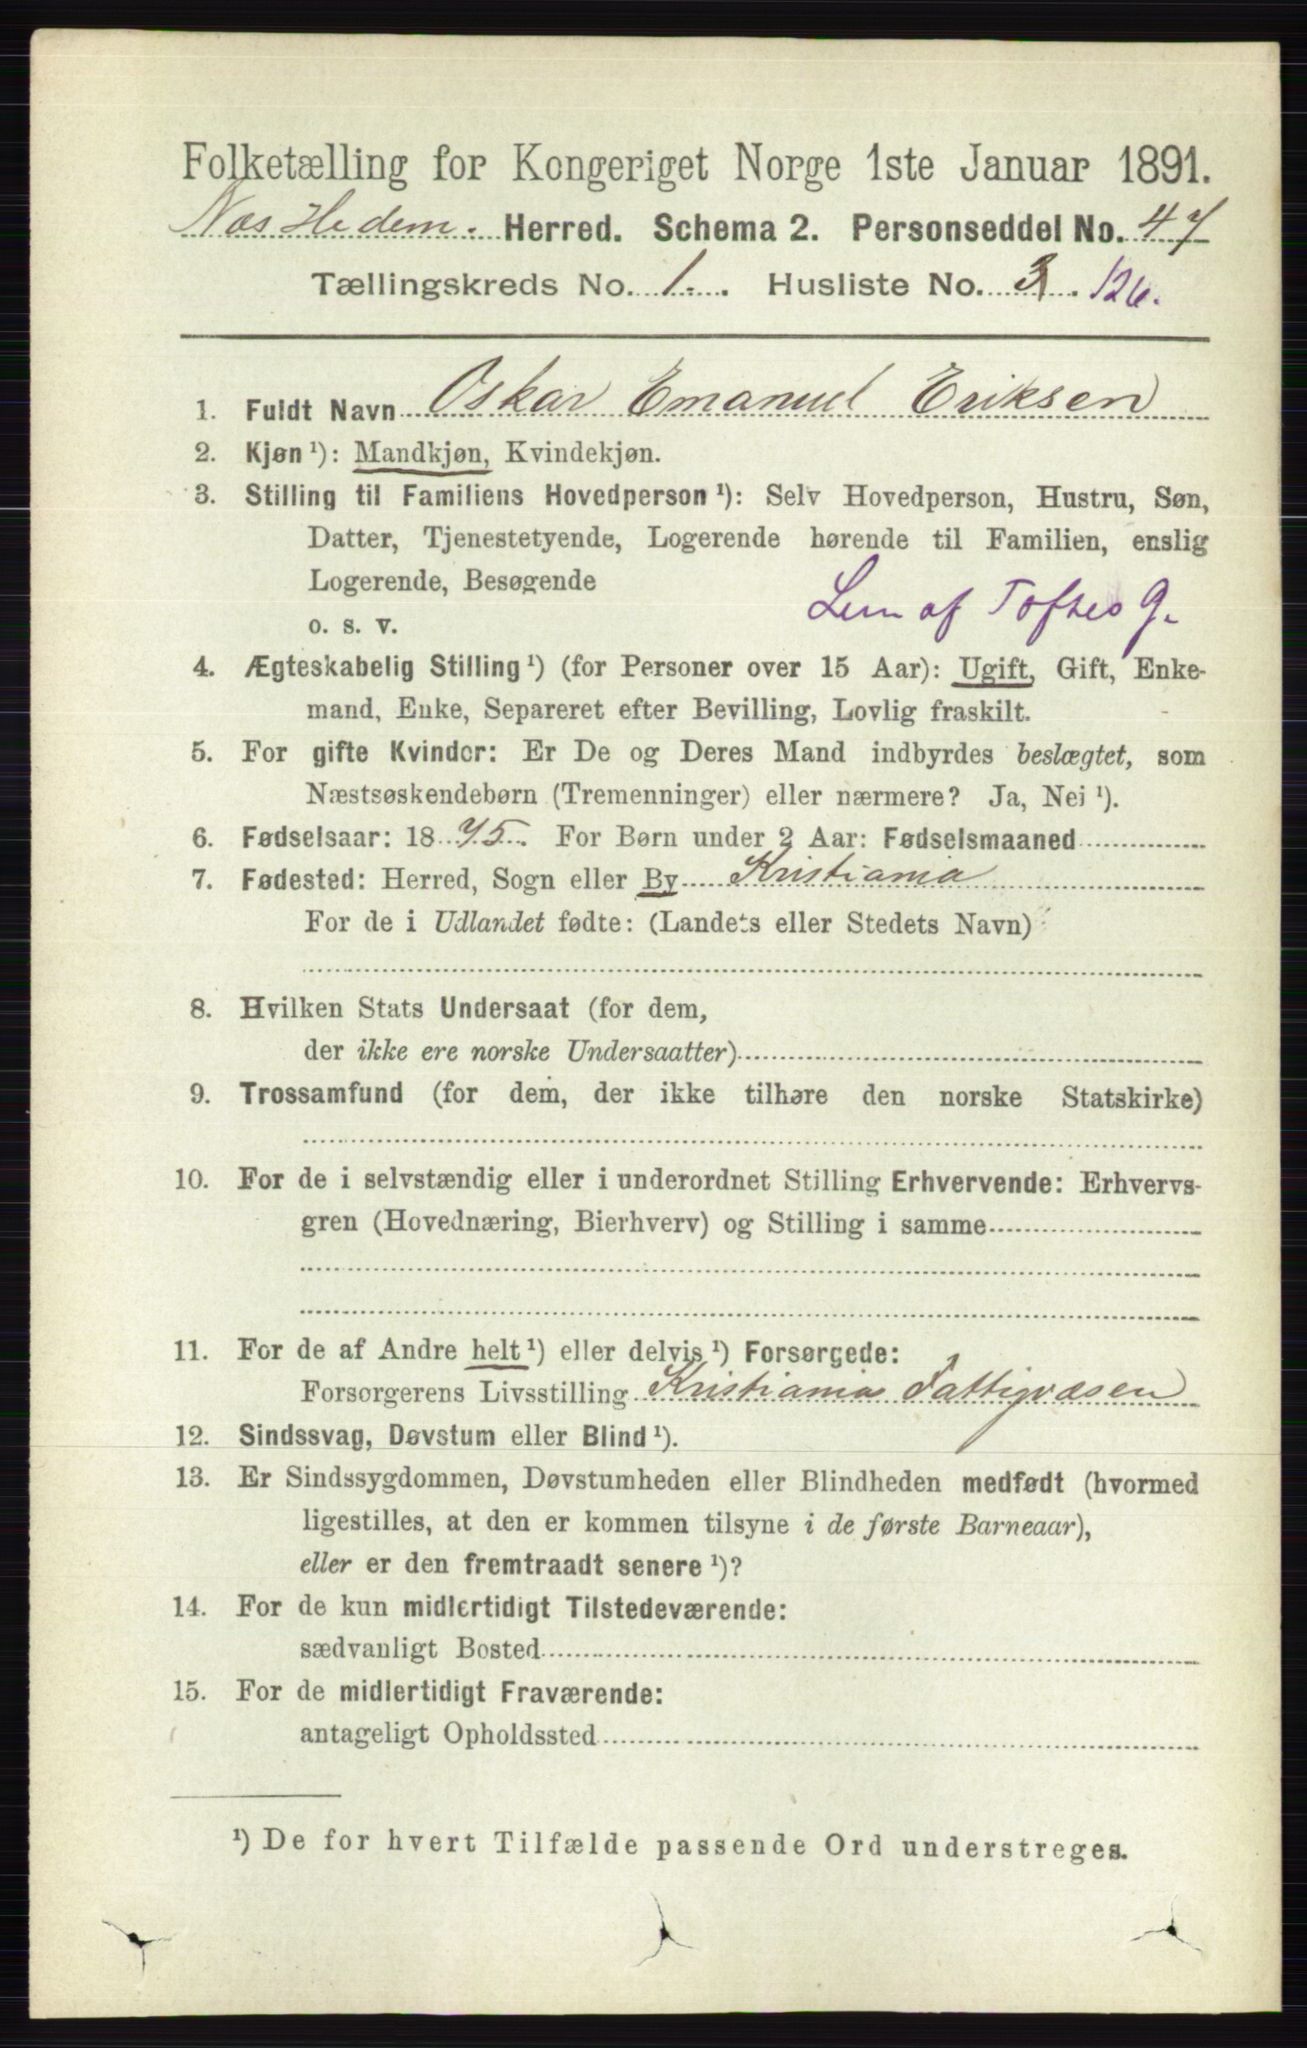 Folketælling for Kongeriget Norge 1ste Januar 1891.
Næs Hedem. Herred. Schema 2. Personseddel No. 47
Tællingskreds No. 1. Husliste No. 3 126.
1. Fuldt Navn Oskar Emanuel Eriksen
2. Kjøn ¹): Mandkjøn, Kvindekjøn.
3. Stilling til Familiens Hovedperson ¹): Selv Hovedperson, Hustru, Søn,
Datter, Tjenestetyende, Logerende hørende til Familien, enslig
Logerende, Besøgende
o. s. v. Lem af Toftes G.
4. Ægteskabelig Stilling ¹) (for Personer over 15 Aar): Ugift, Gift, Enke-
mand, Enke, Separeret efter Bevilling, Lovlig fraskilt.
5. For gifte Kvinder: Er De og Deres Mand indbyrdes beslægtet, som
Næstsøskendebørn (Tremenninger) eller nærmere? Ja, Nei ¹).
6. Fødselsaar: 1875. For Børn under 2 Aar: Fødselsmaaned
7. Fødested: Herred, Sogn eller By Kristiania
For de i Udlandet fødte: (Landets eller Stedets Navn)
8. Hvilken Stats Undersaat (for dem,
der ikke ere norske Undersaatter)
9. Trossamfund (for dem, der ikke tilhøre den norske Statskirke)
10. For de i selvstændig eller i underordnet Stilling Erhvervende: Erhvervs-
gren (Hovednæring, Bierhverv) og Stilling i samme
11. For de af Andre helt ¹) eller delvis ¹) Forsørgede:
Forsørgerens Livsstilling Kristiania Fattigvæsen
12. Sindssvag, Døvstum eller Blind ¹).
13. Er Sindssygdommen, Døvstumheden eller Blindheden medfødt (hvormed
ligestilles, at den er kommen tilsyne i de første Barneaar),
eller er den fremtraadt senere ¹)?
14. For de kun midlertidigt Tilstedeværende:
sædvanligt Bosted
15. For de midlertidigt Fraværende:
antageligt Opholdssted
¹) De for hvert Tilfælde passende Ord understreges.